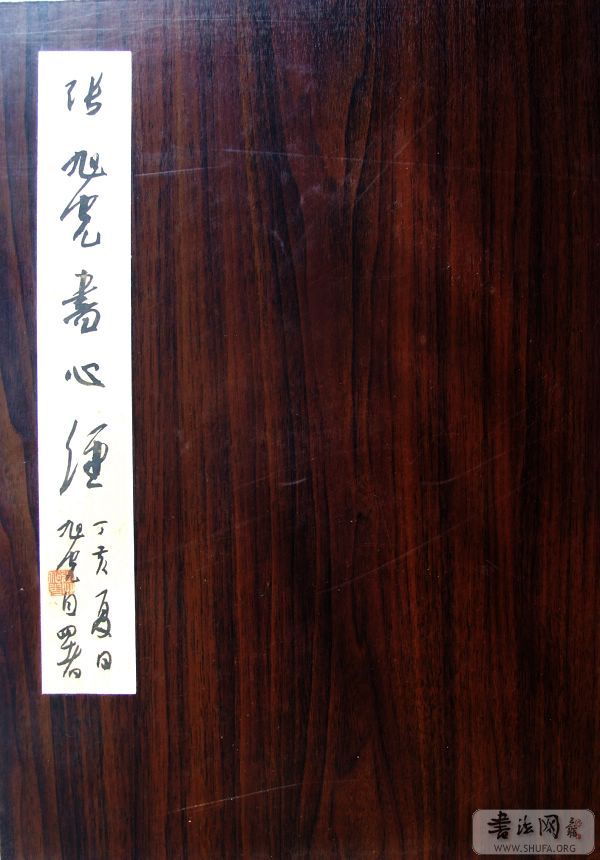 张旭光書心經
丁亥夏日
旭光自署
書法网
WWW.SHUFA.ORG